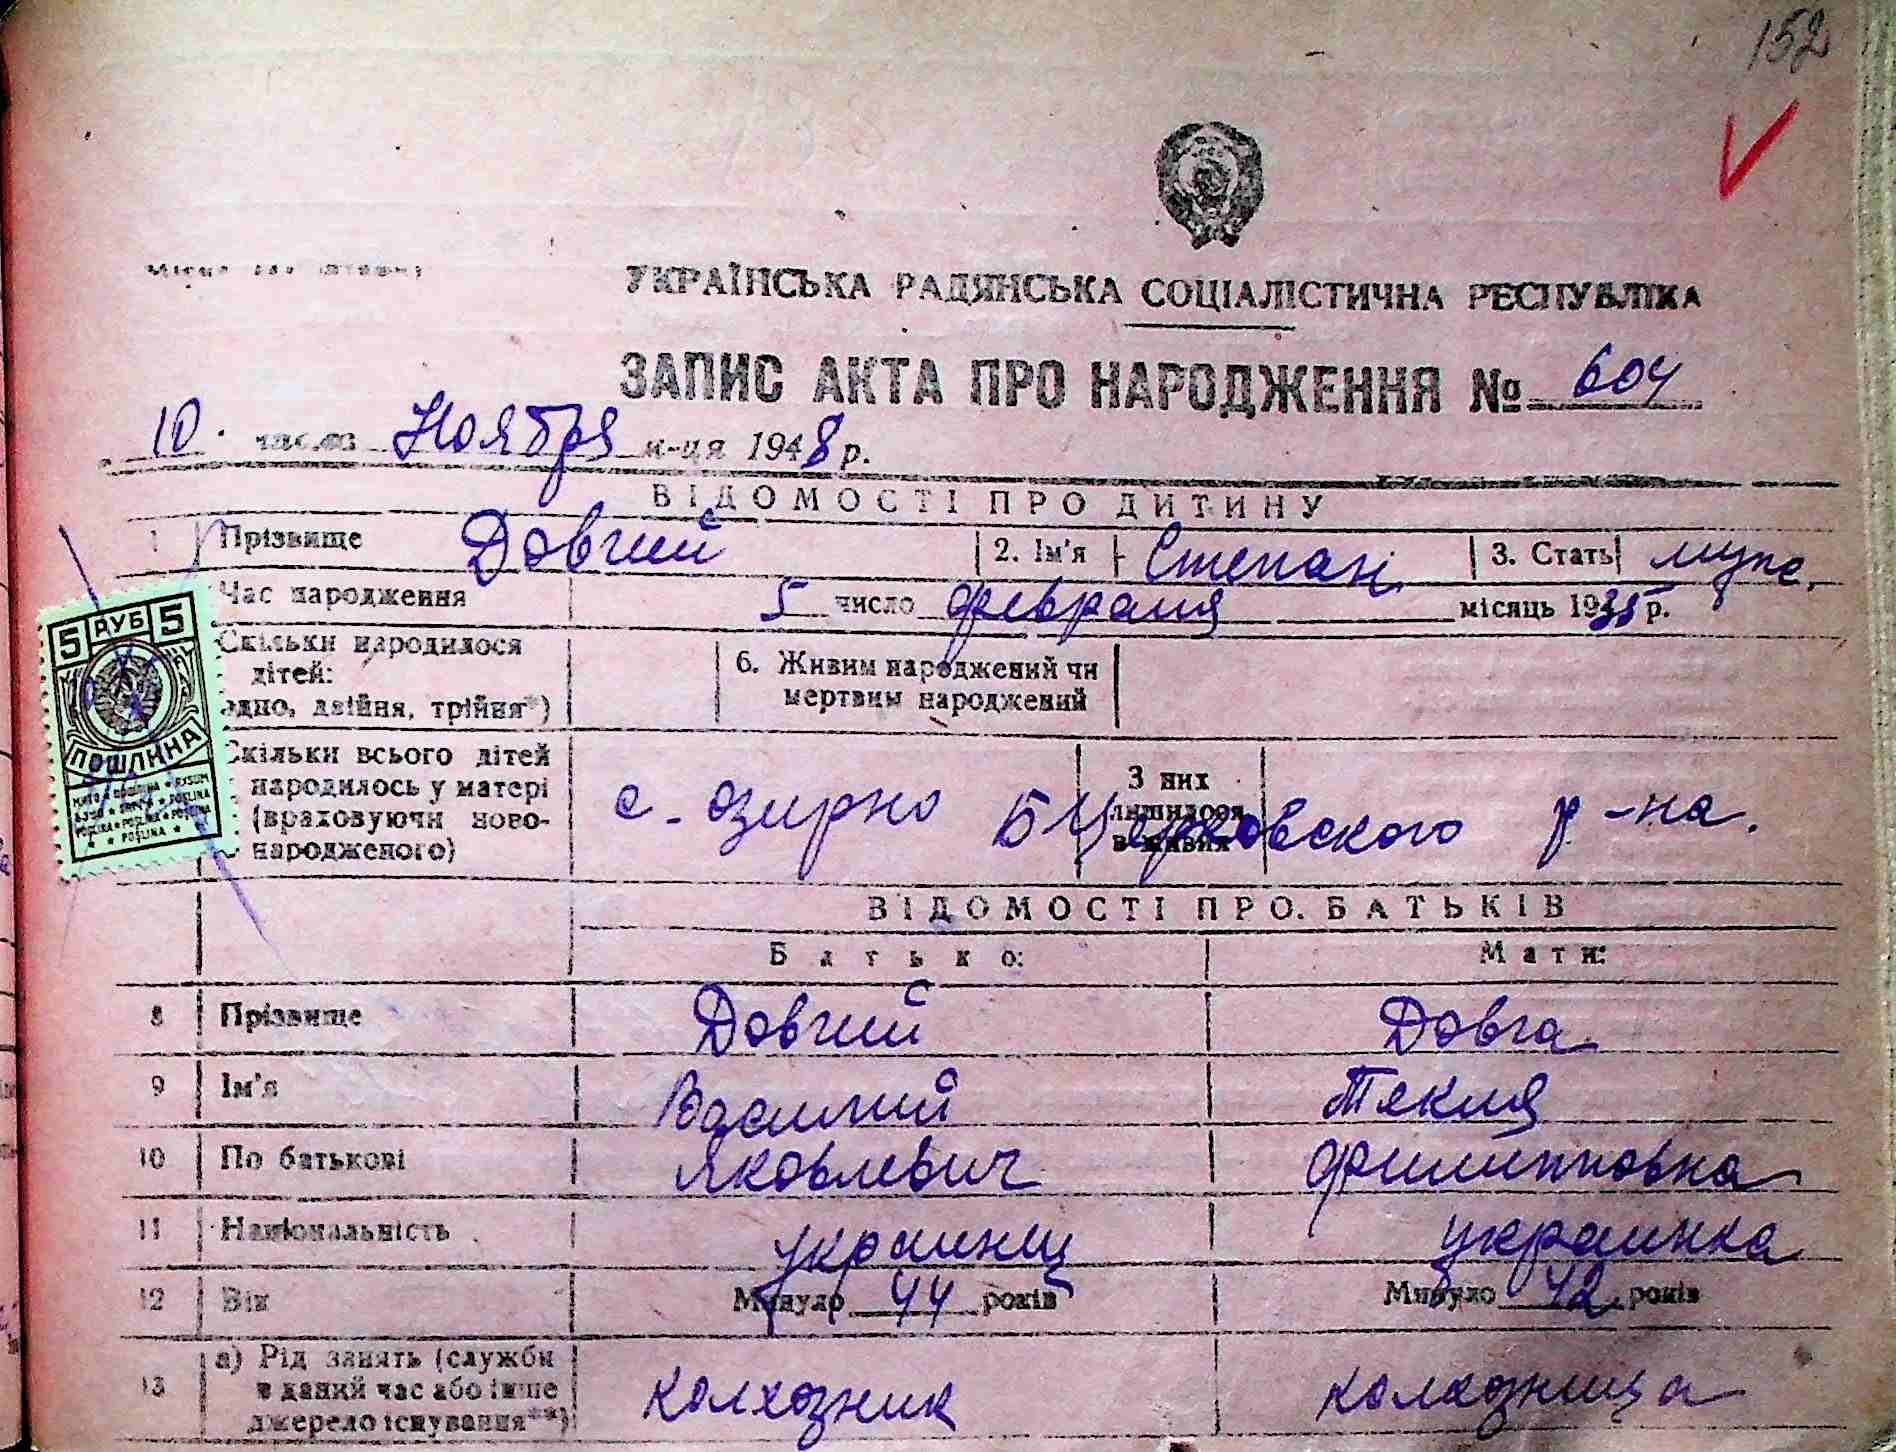 152
УКРАЇНСЬКА РАДЯНСЬКА СОЦІАЛІСТИЧНА РЕСПУБЛІКА
ЗАПИС АКТА ПРО НАРОДЖЕННЯ № 604
10 числа Ноября м-ця 1948 р.
ВІДОМОСТІ ПРО ДИТИНУ
1 Прізвище Довгий 2. Ім'я Степан 3. Стать муж.
Час народження 5 число февраля місяць 1935 р.
Скільки народилося дітей: одно, двійня, трійня*) 6. Живим народжений чи мертвим народжений
Скільки всього дітей народилось у матері (враховуючи ново-народженого) З них лишилося в живих
с. озирно БЦерковского р-на.
5 РУБ 5
ПОШЛИНА
ВІДОМОСТІ ПРО БАТЬКІВ
Батько: Мати:
8 Прізвище Довгий Довга
9 Ім'я Василий Текля
10 По батькові Яковлевич Филипповна
11 Національність украинец украинка
12 Вік Минуло 44 років Минуло 42 років
13 а) Рід занять (служби в даний час або інше джерело існування**) колхозник колхозница